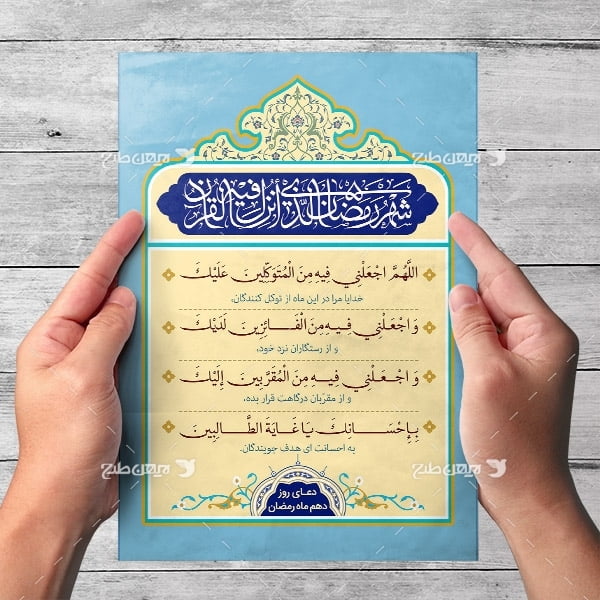 شَهْرُ رَمَضانَ الَّذي أُنْزِلَ فيهِ الْقُرْآنُ
اللَّهُمَّ اجْعَلْنِي فِيهِ مِنَ الْمُتَوَكِّلِينَ عَلَيْكَ
خدایا مرا در این ماه از توکل کنندگان،
وَ اجْعَلْنِي فِيهِ مِنَ الْفَائِزِينَ لَدَيْكَ
و از رستگاران نزد خود،
وَ اجْعَلْنِي فِيهِ مِنَ الْمُقَرَّبِينَ إِلَيْكَ
و از مقرّبان درگاهت قرار بده،
بِإِحْسَانِكَ يَا غَايَةَ الطَّالِبِينَ
به احسانت ای هدف جویندگان.
دعـای روز
دهم ماه رمضان
میهن طرح
میهن طرح
میهن طرح
میهن طرح